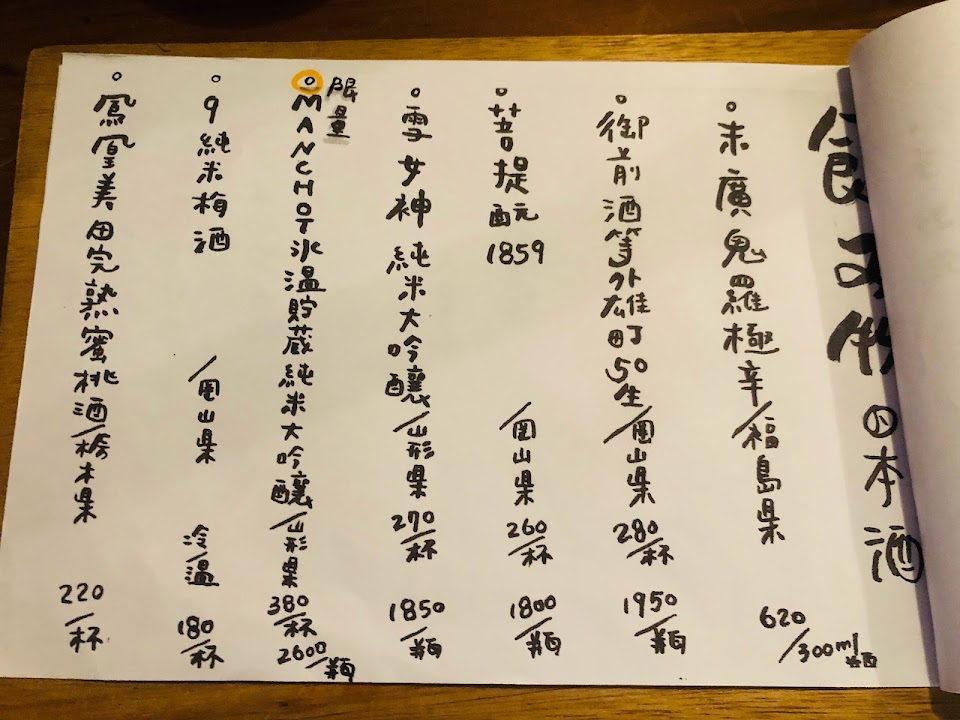 日本酒
。末廣鬼羅極辛/福島県 620/300ml瓶
。御前酒等外雄町50生/岡山県 280/杯 1950/瓶
。菩提酛1859 /岡山県 260/杯 1800/瓶
。雪女神純米大吟釀/山形県 270/杯 1850/瓶
限量
。MANCHOT氷温貯蔵純米大吟釀/山形県 380/杯 2600/瓶
。9純米梅酒 /岡山県 冷/温 180/杯
。鳳凰美田完熟蜜桃酒/栃木県 220/杯